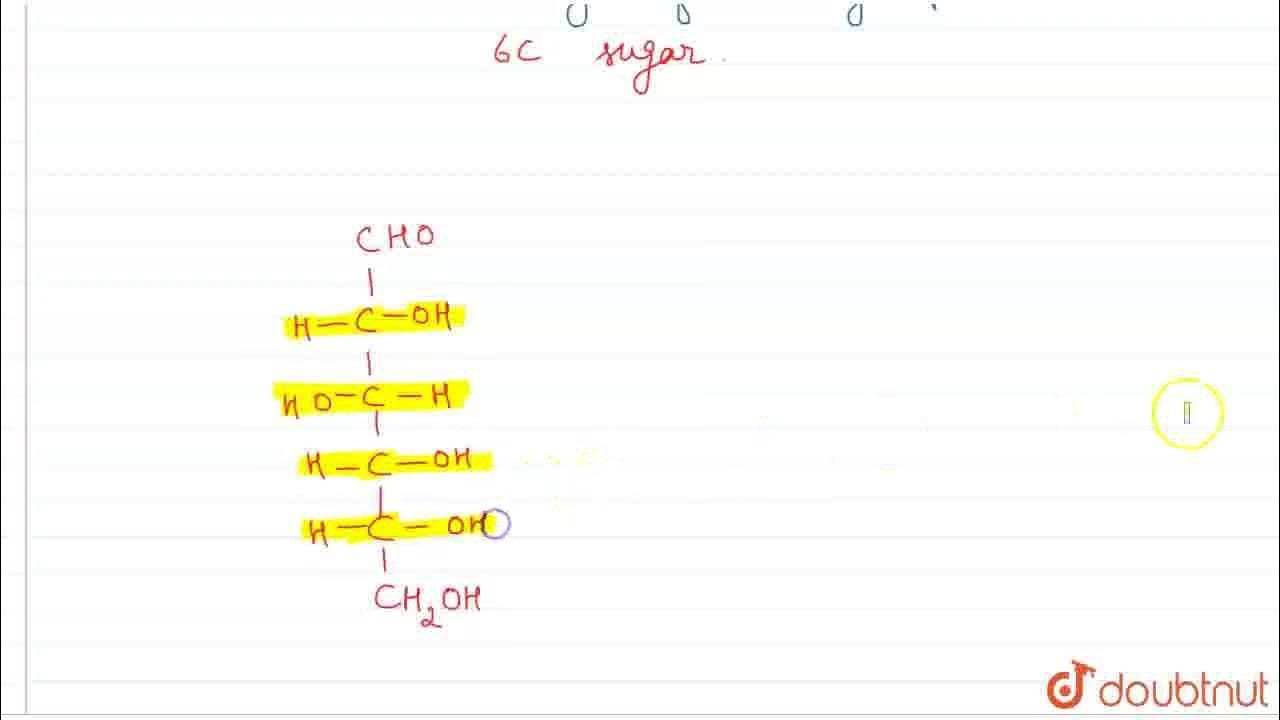 6C sugar.
CHO
H-C-OH
HO-C-H
H-C-OH
H-C-OH
CH2OH
doubtnut